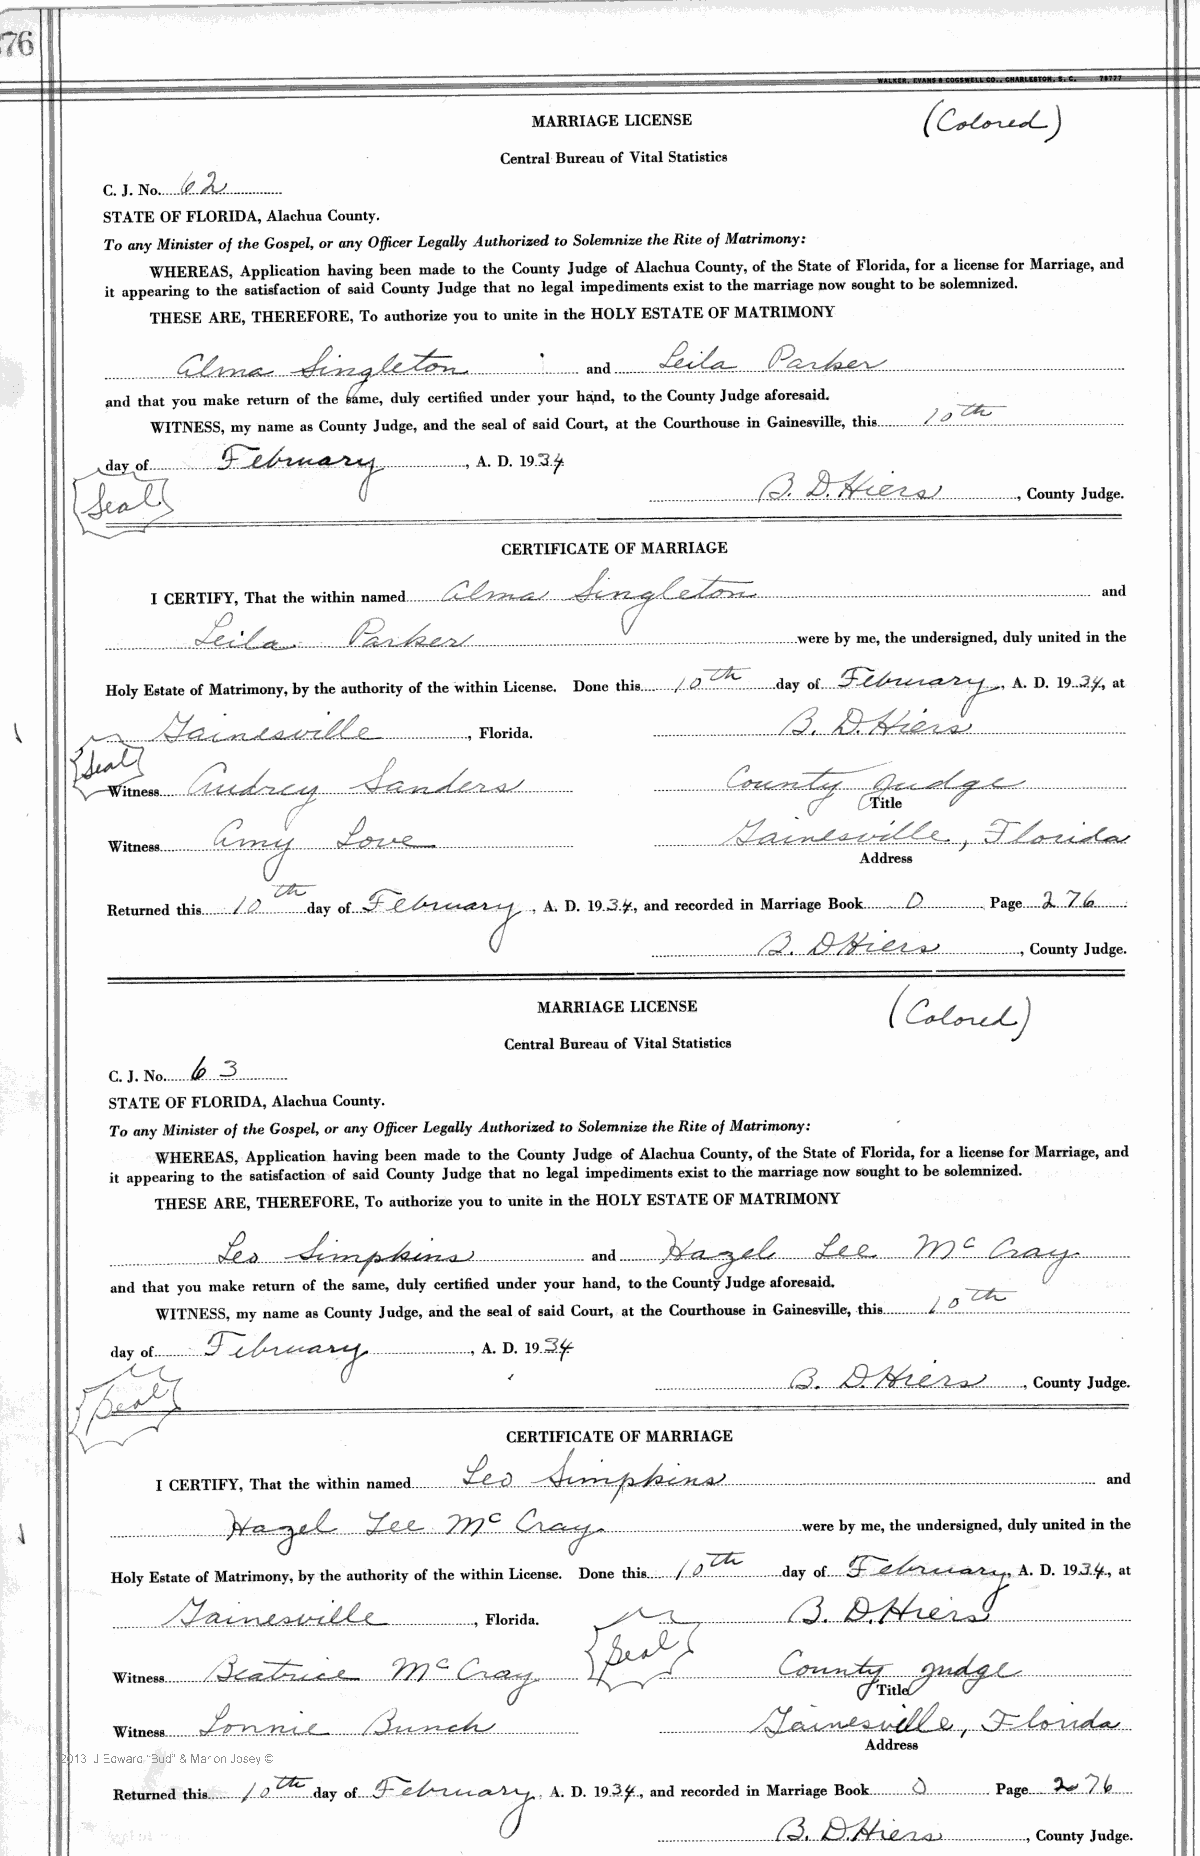 76
WALKER, EVANS & COGSWELL CO., CHARLESTON, S. C. 78777
MARRIAGE LICENSE (Colored)
Central Bureau of Vital Statistics
C. J. No. 62
STATE OF FLORIDA, Alachua County.
To any Minister of the Gospel, or any Officer Legally Authorized to Solemnize the Rite of Matrimony:
WHEREAS, Application having been made to the County Judge of Alachua County, of the State of Florida, for a license for Marriage, and
it appearing to the satisfaction of said County Judge that no legal impediments exist to the marriage now sought to be solemnized.
THESE ARE, THEREFORE, To authorize you to unite in the HOLY ESTATE OF MATRIMONY
Alma Singleton and Leila Parker
and that you make return of the same, duly certified under your hand, to the County Judge aforesaid.
WITNESS, my name as County Judge, and the seal of said Court, at the Courthouse in Gainesville, this 10th
day of February, A. D. 1934
Seal B. D. Hiers, County Judge.
CERTIFICATE OF MARRIAGE
I CERTIFY, That the within named Alma Singleton and
Leila Parker were by me, the undersigned, duly united in the
Holy Estate of Matrimony, by the authority of the within License. Done this 10th day of February, A. D. 1934, at
Gainesville, Florida. B. D. Hiers
Seal
Witness Audrey Sanders County Judge
Title
Witness Amy Love Gainesville, Florida
Address
Returned this 10th day of February, A. D. 1934, and recorded in Marriage Book O Page 276
B. D Hiers, County Judge.
MARRIAGE LICENSE (Colored)
Central Bureau of Vital Statistics
C. J. No. 63
STATE OF FLORIDA, Alachua County.
To any Minister of the Gospel, or any Officer Legally Authorized to Solemnize the Rite of Matrimony:
WHEREAS, Application having been made to the County Judge of Alachua County, of the State of Florida, for a license for Marriage, and
it appearing to the satisfaction of said County Judge that no legal impediments exist to the marriage now sought to be solemnized.
THESE ARE, THEREFORE, To authorize you to unite in the HOLY ESTATE OF MATRIMONY
Leo Simpkins and Hazel Lee McCray
and that you make return of the same, duly certified under your hand, to the County Judge aforesaid.
WITNESS, my name as County Judge, and the seal of said Court, at the Courthouse in Gainesville, this 10th
day of February, A. D. 1934
Seal B. D. Hiers, County Judge.
CERTIFICATE OF MARRIAGE
I CERTIFY, That the within named Leo Simpkins and
Hazel Lee McCray were by me, the undersigned, duly united in the
Holy Estate of Matrimony, by the authority of the within License. Done this 10th day of February, A. D. 1934, at
Gainesville, Florida. B. D. Hiers
Seal
Witness Beatrice McCray County Judge
Title
Witness Lonnie Bunch Gainesville, Florida
Address
2013 J Edward "Bud" & Marion Josey ©
Returned this 10th day of February, A. D. 1934, and recorded in Marriage Book O Page 276
B. D. Hiers, County Judge.